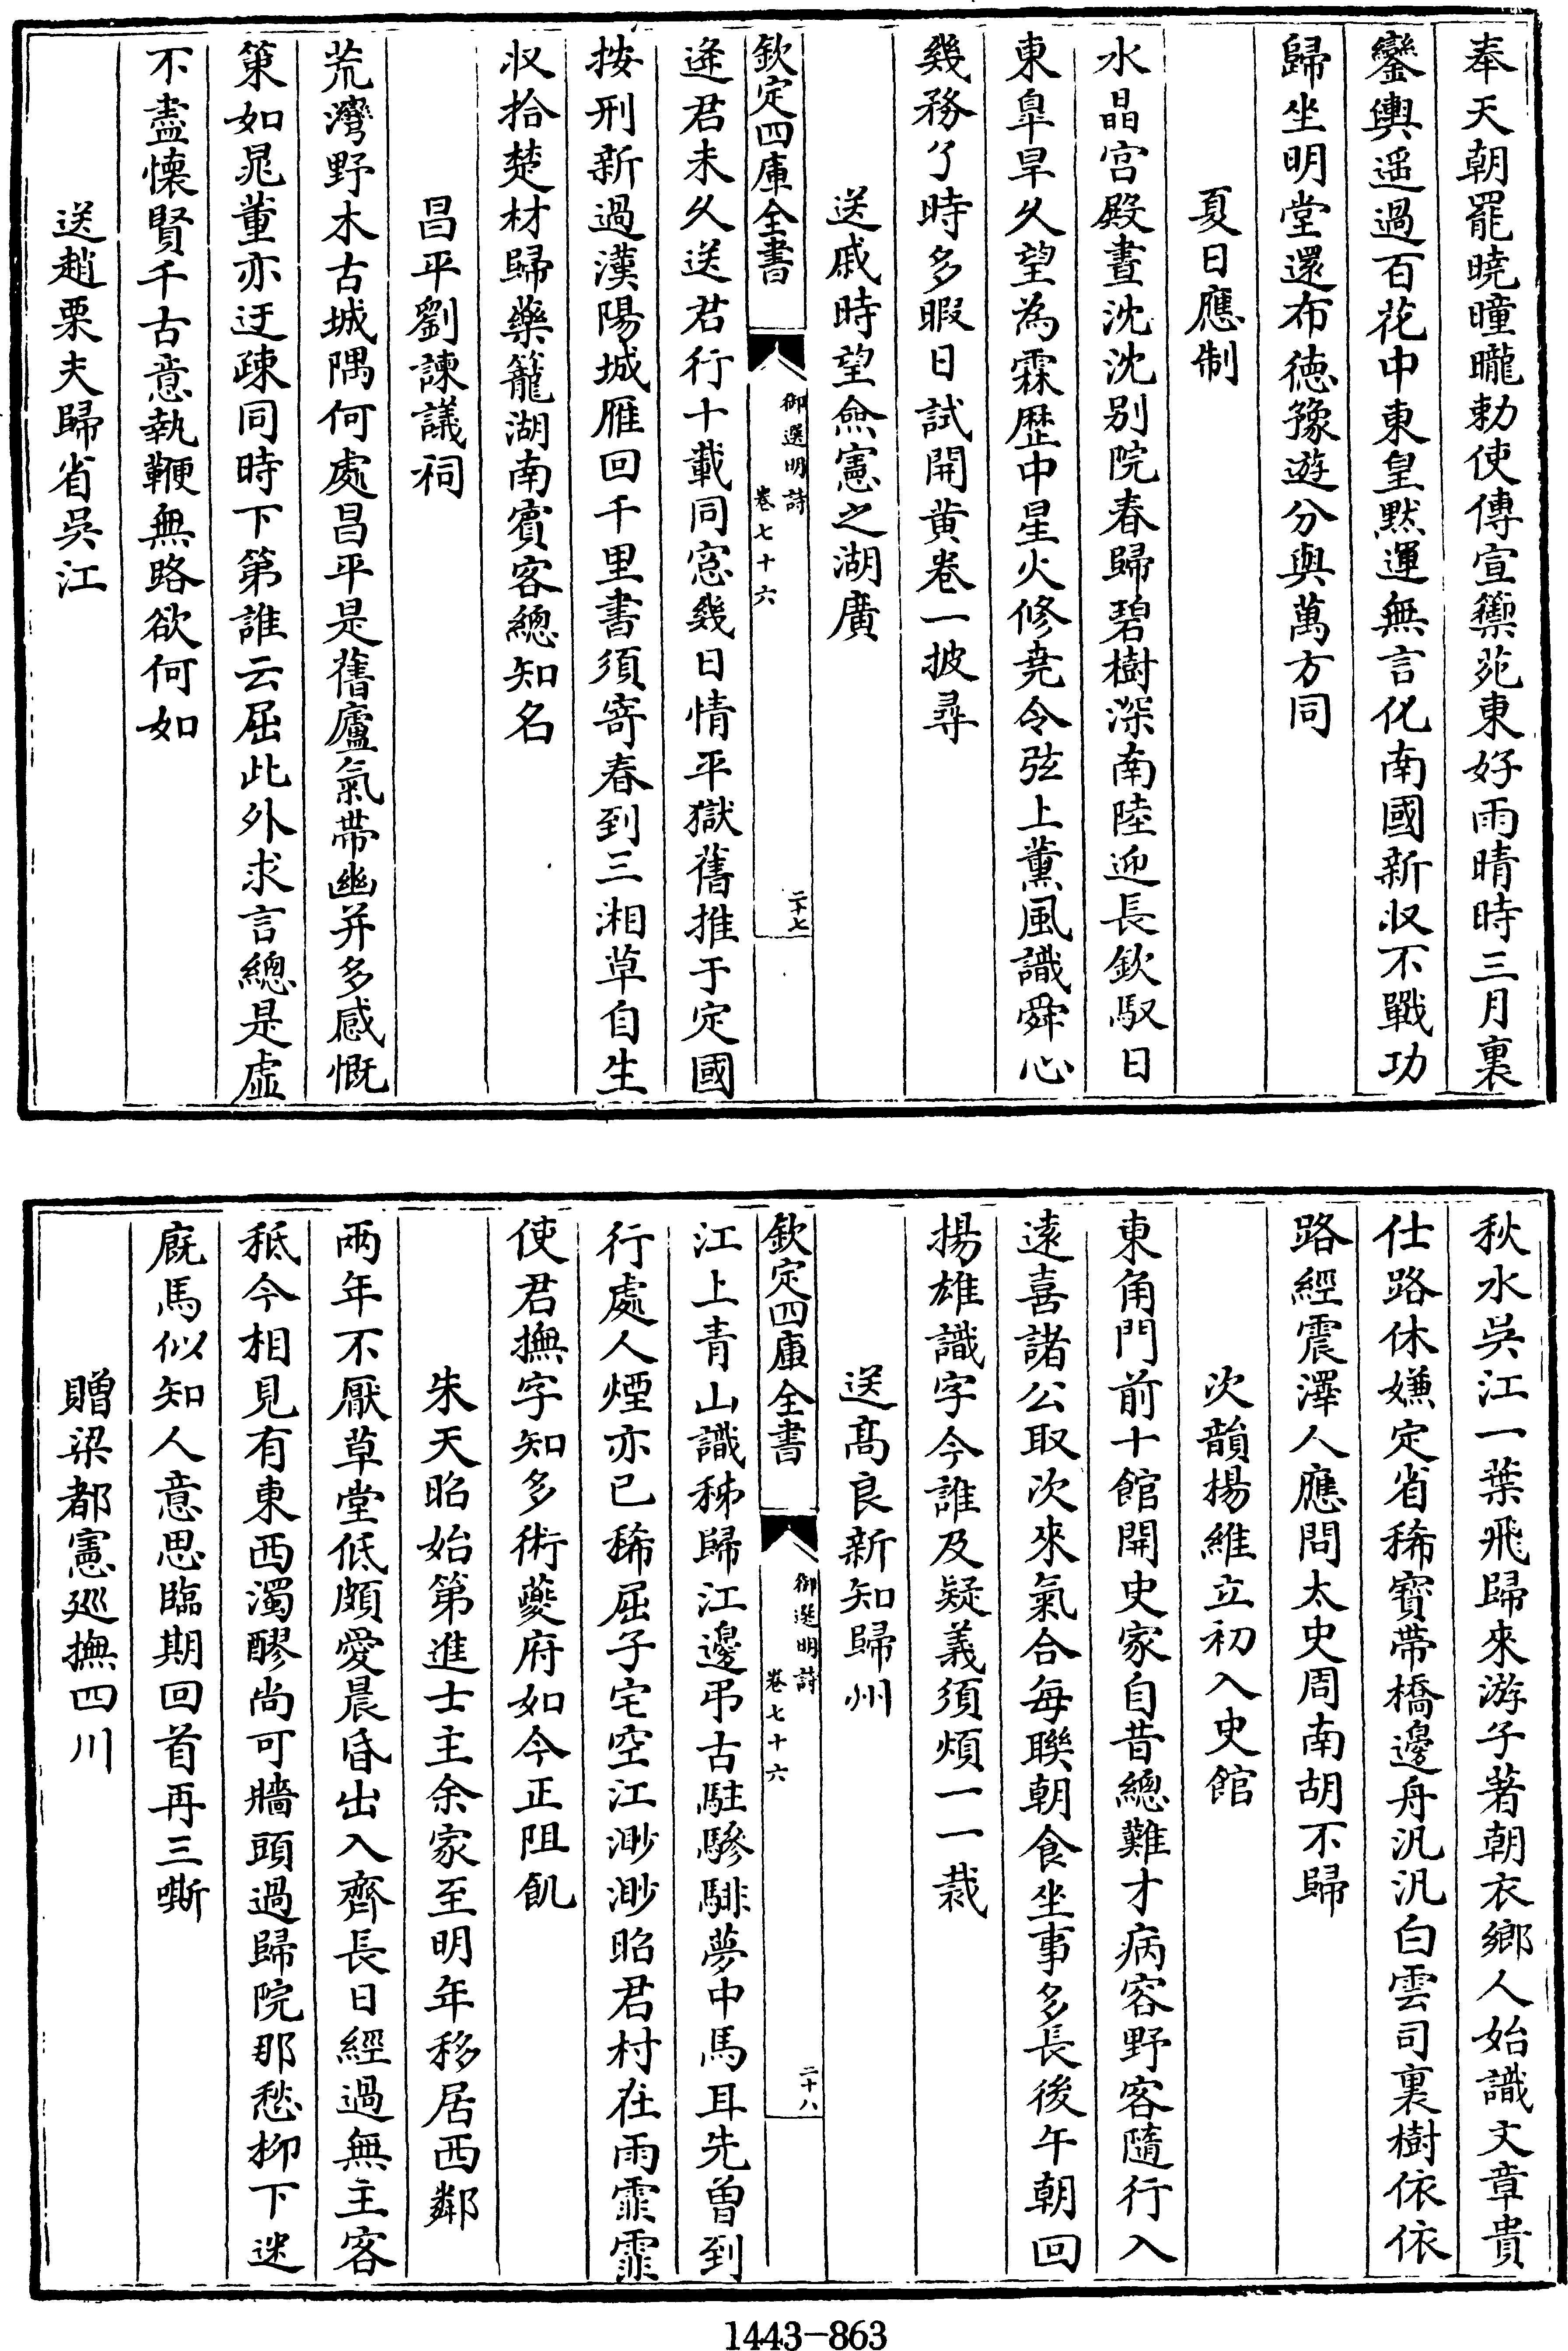 奉天朝罷曉曈曨勅使傳宣籞苑東好雨晴時三月裏
鑾輿遥過百花中東皇黙運無言化南國新收不戰功
歸坐明堂還布徳豫遊分與萬方同
夏日應制
水晶宫殿晝沈沈别院春歸碧樹深南陸迎長欽馭日
東臯旱久望為霖歴中星火修尭令弦上薰風識舜心
幾務了時多暇日試開黄卷一披尋
送戚時望僉憲之湖廣
欽定四庫全書
御選明詩
卷七十六
二十七
逄君未久送君行十載同窓幾日情平獄舊推于定國
按刑新過漢陽城雁回千里書須寄春到三湘草自生
收拾楚材歸藥籠湖南賓客總知名
昌平劉諫議祠
荒灣野木古城隅何處昌平是舊廬氣帶幽并多感慨
策如晁董亦迂疎同時下第誰云屈此外求言總是虚
不盡懐賢千古意執鞭無路欲何如
送趙栗夫歸省吳江
秋水吳江一葉飛歸來游子著朝衣鄉人始識文章貴
仕路休嫌定省稀寳帶橋邊舟汎汎白雲司裏樹依依
路經震澤人應問太史周南胡不歸
次韻楊維立初入史館
東角門前十館開史家自昔總難才病容野客隨行入
遠喜諸公取次來氣合每聯朝食坐事多長後午朝回
揚雄識字今誰及疑義須煩一一裁
送髙良新知歸州
欽定四庫全書
御選明詩
卷七十六
二十八
江上青山識秭歸江邊弔古駐驂騑夢中馬耳先曽到
行處人煙亦已稀屈子宅空江渺渺昭君村在雨霏霏
使君撫字知多術䕫府如今正阻飢
朱天昭始第進士主余家至明年移居西鄰
兩年不厭草堂低頗愛晨昏出入齊長日經過無主客
秪今相見有東西濁醪尚可牆頭過歸院那愁柳下迷
廐馬似知人意思臨期回首再三嘶
贈梁都憲廵撫四川
1443—863